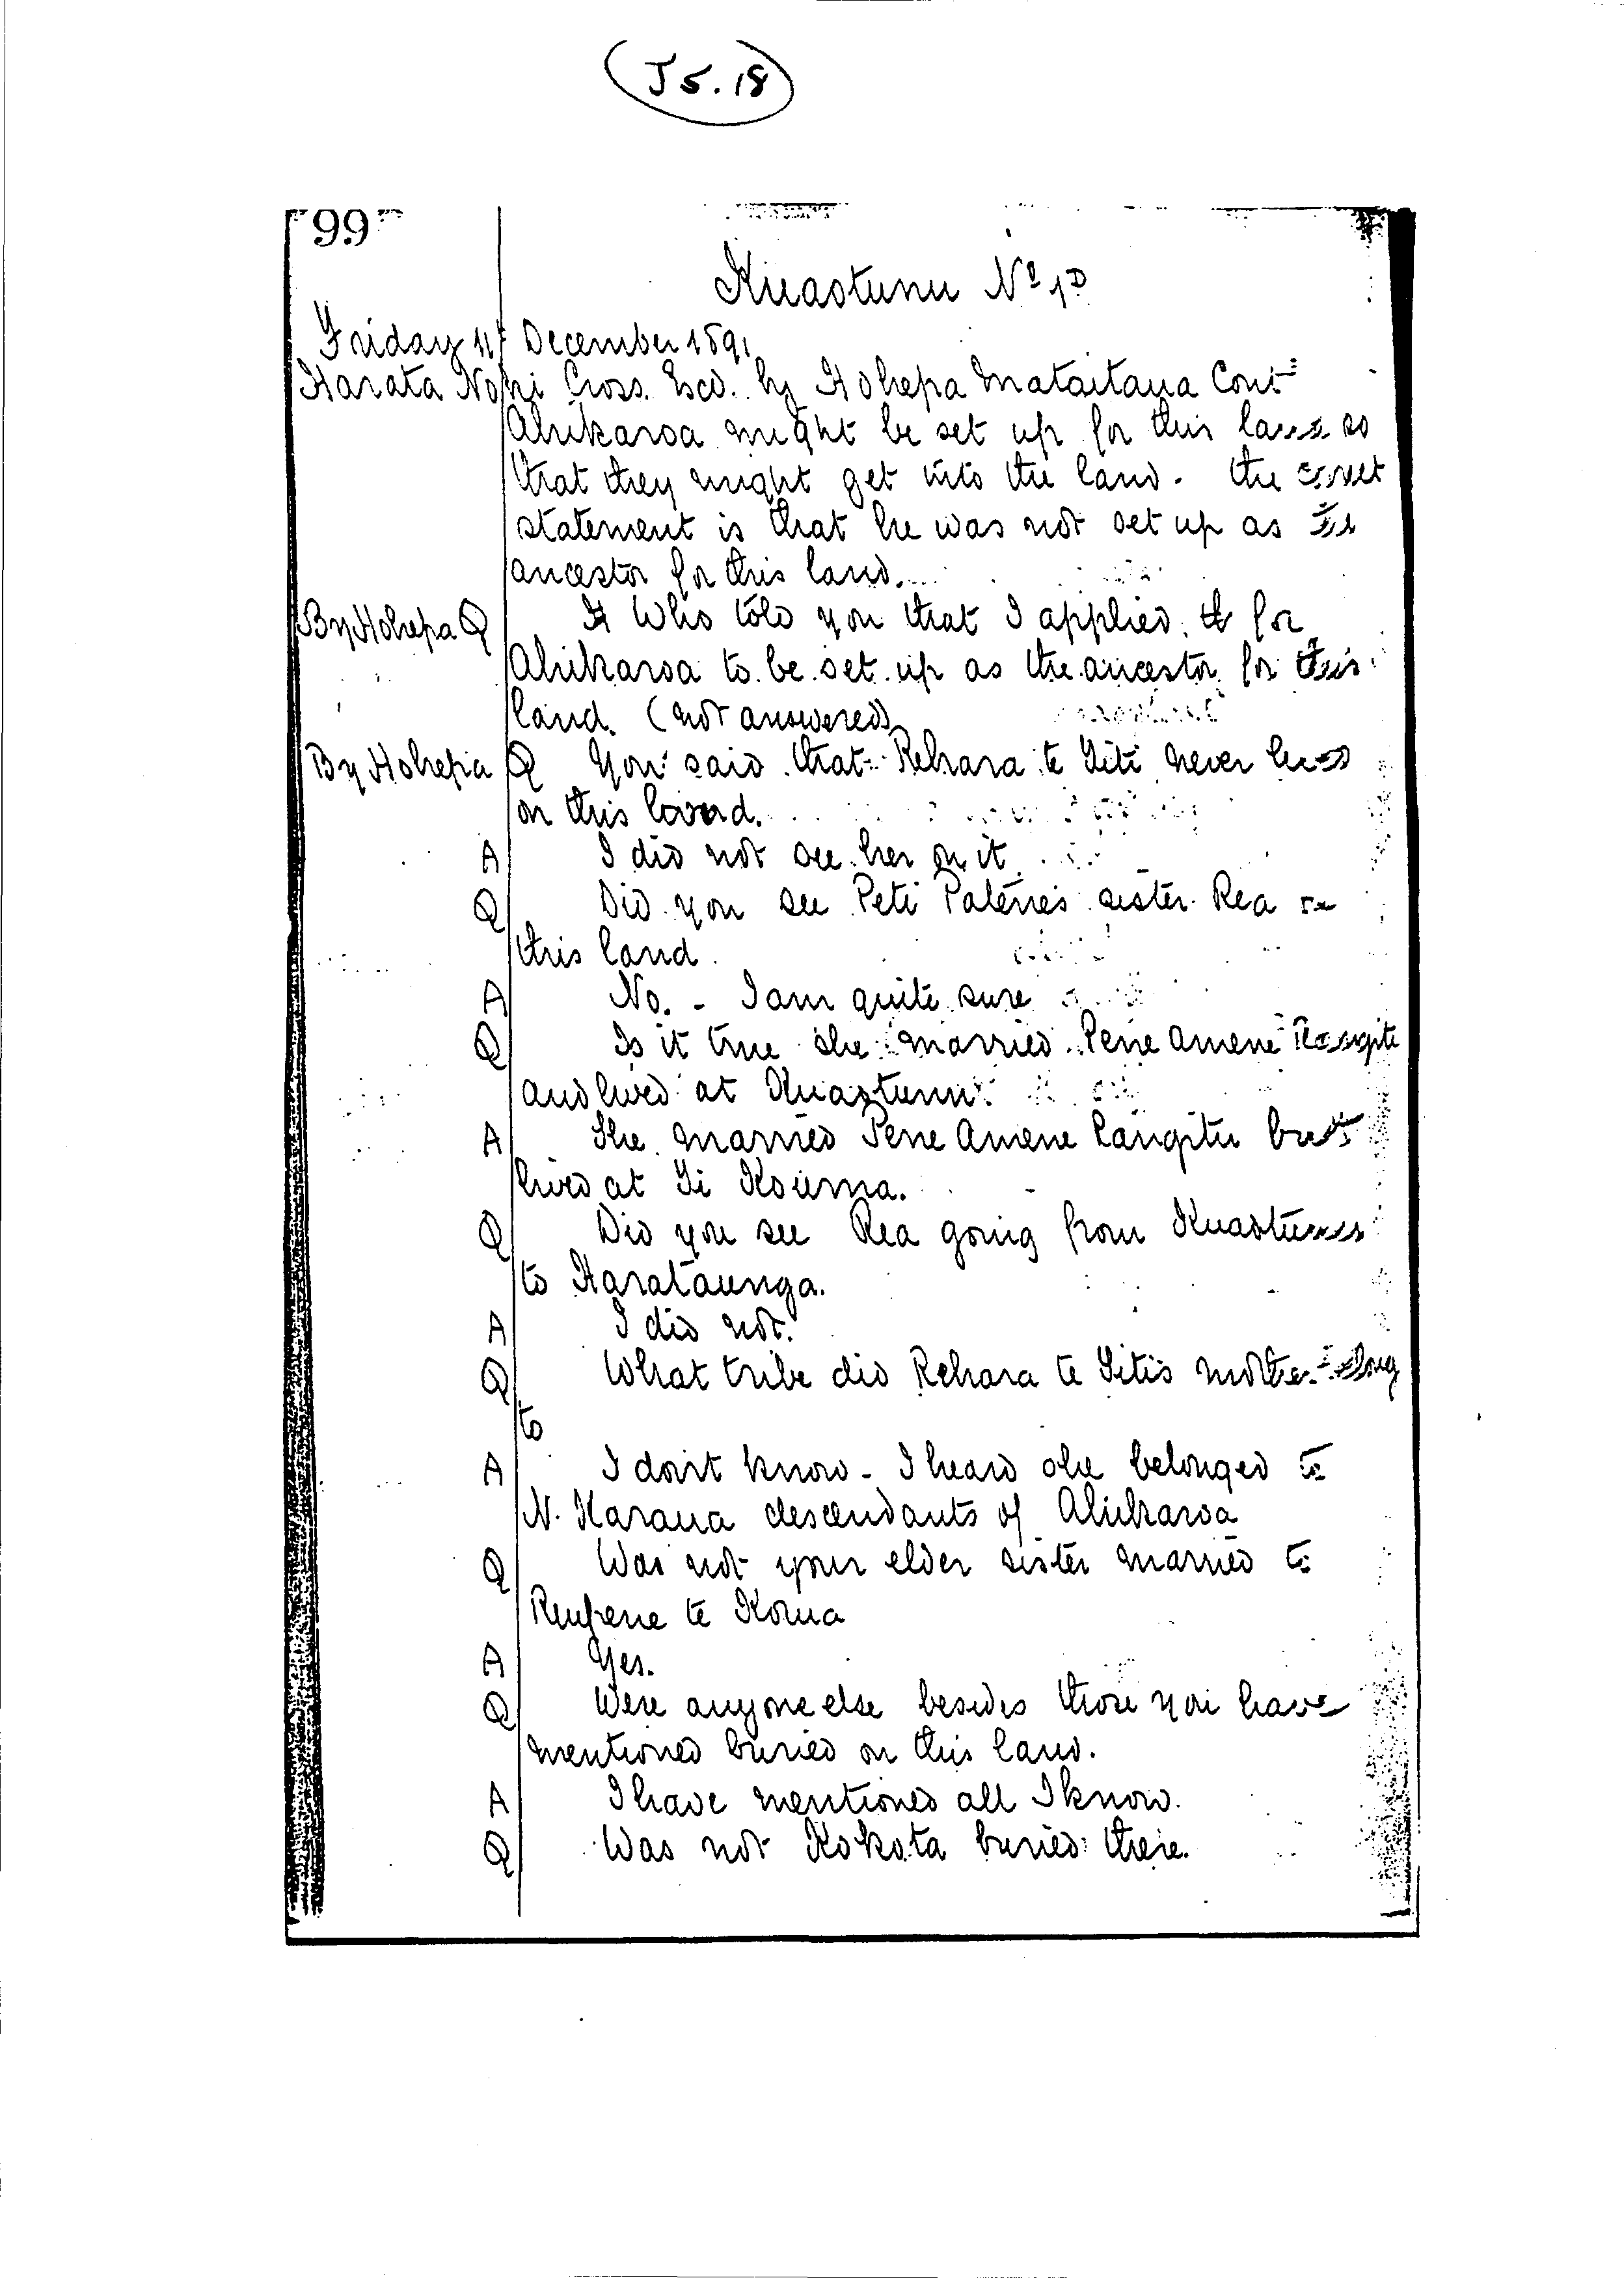 J5.18
99
Kuaotunu No 1D
Friday 11/ December 1891
Harata Nohi Cross. Exd. by Hohepa Mataitaua Cont
Ahikaroa might be set up for this land so
that they might get into the land. The correct
statement is that he was not set up as the
ancestor for this land.
By Hohepa Q Who told you that I applied for
Ahikaroa to be set up as the ancestor for this
land. (not answered)
By Hohepa Q You said that Rehara te Titi never lived
on this land.
A I did not see her on it
Q Did you see Peti Patene's sister Rea on
this land
A No. - I am quite sure
Q Is it true she married Pene Amene Rangitu
and lived at Kuaotunu.
A She married Pene Amene Rangitu but
lived at Ti Kouma.
Q Did you see Rea going from Kuaotunu
to Harataunga.
A I did not.
Q What tribe did Rehara te Titi's mother belong
to
A I don't know - I heard she belonged to
N. Karaua descendants of Ahikaroa
Q Was not your elder sister married to
Reupene te Korua
A Yes.
Q Were anyone else besides those you have
mentioned buried on this land.
A I have mentioned all I know.
Q Was not Kokota buried there.